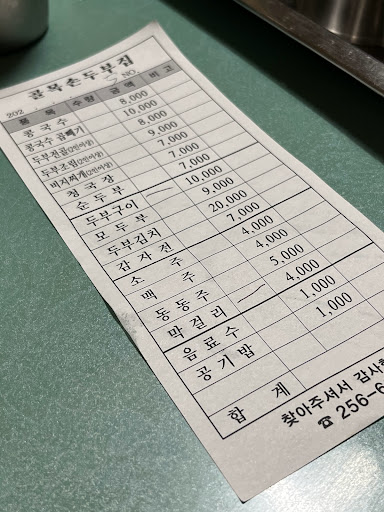 골목손두부집
202 NO.
품 목 수량 금액 비고
콩국수 8,000
콩국수곱빼기 10,000
두부전골(2인이상) 8,000
두부조림(2인이상) 9,000
비지찌개(2인이상) 7,000
청국장 7,000
순두부 7,000
두부구이 10,000
모두부 9,000
두부김치 20,000
감자전 7,000
소주 4,000
맥주 4,000
동동주 5,000
막걸리 4,000
음료수 1,000
공기밥 1,000
합계
찾아주셔서 감사
☎ 256-6